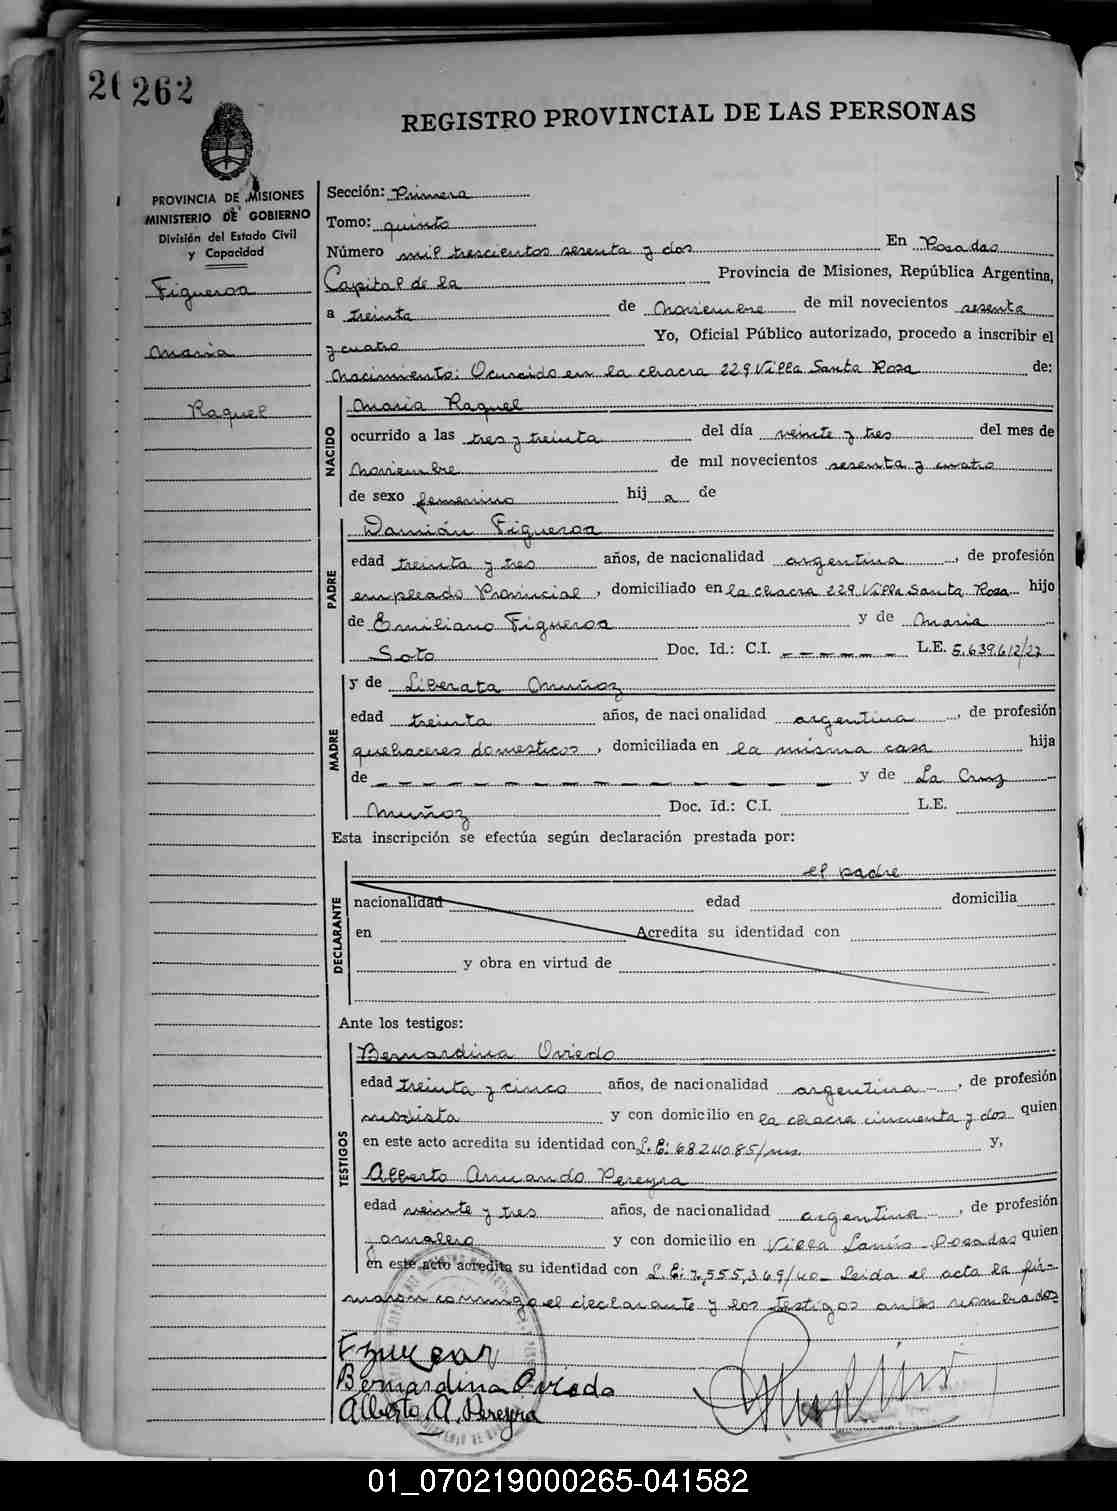 26 262
REGISTRO PROVINCIAL DE LAS PERSONAS
PROVINCIA DE MISIONES
MINISTERIO DE GOBIERNO
División del Estado Civil
y Capacidad
Figueroa
Maria
Raquel
Sección: Primera
Tomo: quinto
Número mil trescientos sesenta y dos En Posadas
Capital de la Provincia de Misiones, República Argentina,
a treinta de noviembre de mil novecientos sesenta
y cuatro Yo, Oficial Público autorizado, procedo a inscribir el
nacimiento: Ocurrido en la chacra 229 Villa Santa Rosa de:
NACIDO
Maria Raquel
ocurrido a las tres y treinta del día veinte y tres del mes de
noviembre de mil novecientos sesenta y cuatro
de sexo femenino hij a de
PADRE
Damián Figueroa
edad treinta y tres años, de nacionalidad argentina, de profesión
empleado Provincial, domiciliado en la chacra 229 Villa Santa Rosa hijo
de Emiliano Figueroa y de Maria
Soto Doc. Id.: C.I. – – – – – – L.E. 5.639.612/27
MADRE
y de Liberata Muñoz
edad treinta años, de nacionalidad argentina, de profesión
quehaceres domesticos, domiciliada en la misma casa hija
de – – – – – – – – – – – y de La Cruz
Muñoz Doc. Id.: C.I. L.E.
Esta inscripción se efectúa según declaración prestada por:
DECLARANTE
el padre
nacionalidad edad domicilia
en Acredita su identidad con
y obra en virtud de
Ante los testigos:
TESTIGOS
Bernardina Oviedo
edad treinta y cinco años, de nacionalidad argentina, de profesión
modista y con domicilio en la chacra cincuenta y dos quien
en este acto acredita su identidad con L.E: 6824085/ y,
Alberto Armando Pereyra
edad veinte y tres años, de nacionalidad argentina, de profesión
Jornalero y con domicilio en Villa Lanús Posadas quien
en este acto acredita su identidad con L.E: 7,555,369/40 – Leida el acta la fir-
maron conmigo el declarante y los testigos antes nombrados
Bernardina Oviedo
Alberto A. Pereyra
01_070219000265-041582